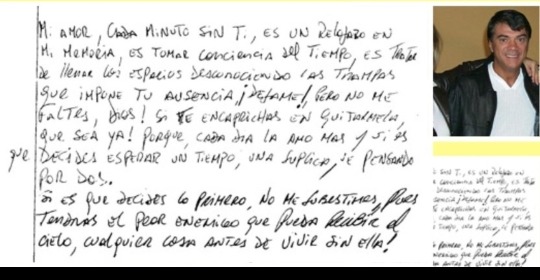 Mi AMOR, CADA MINUTO SIN TI, ES UN RELOJAZO EN
Mi MEMORIA, ES TOMAR CONCIENCIA del TIEMPO, ES TRATAR
de llenar los ESPACIOS DESCONOCIENDO LAS TRAMPAS
QUE IMPONE TU AUSENCIA ¡DEJAME! PERO NO ME
FALTES, DIOS! SI TE ENCAPRICHAS EN QUITARMELA,
QUE SEA YA! PORQUE, CADA DIA LA AMO MAS Y SI ES
que DECIDES ESPERAR UN TIEMPO, UNA SUPLICA, PENSANDO
POR DOS.
SI ES QUE DECIDES LO PRIMERO, NO ME SUBESTIMES, PUES
TENDRAS EL PEOR ENEMIGO QUE PUEDA Recibir el
CIELO, CUALQUIER COSA ANTES DE VIVIR SIN ELLA!